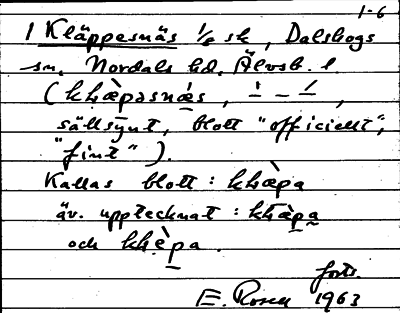 1-6
1 Kläppesnäs 1/6 sk, Dalskogs
sn. Nordals hd. Älvsb. l.
(khæpəsnæs, ' – ',
sällsynt, blott "officiellt",
"fint").
Kallas blott: khæpa
äv. upptecknat: khæpa
och khèpa.
forts.
E. Rosell 1963